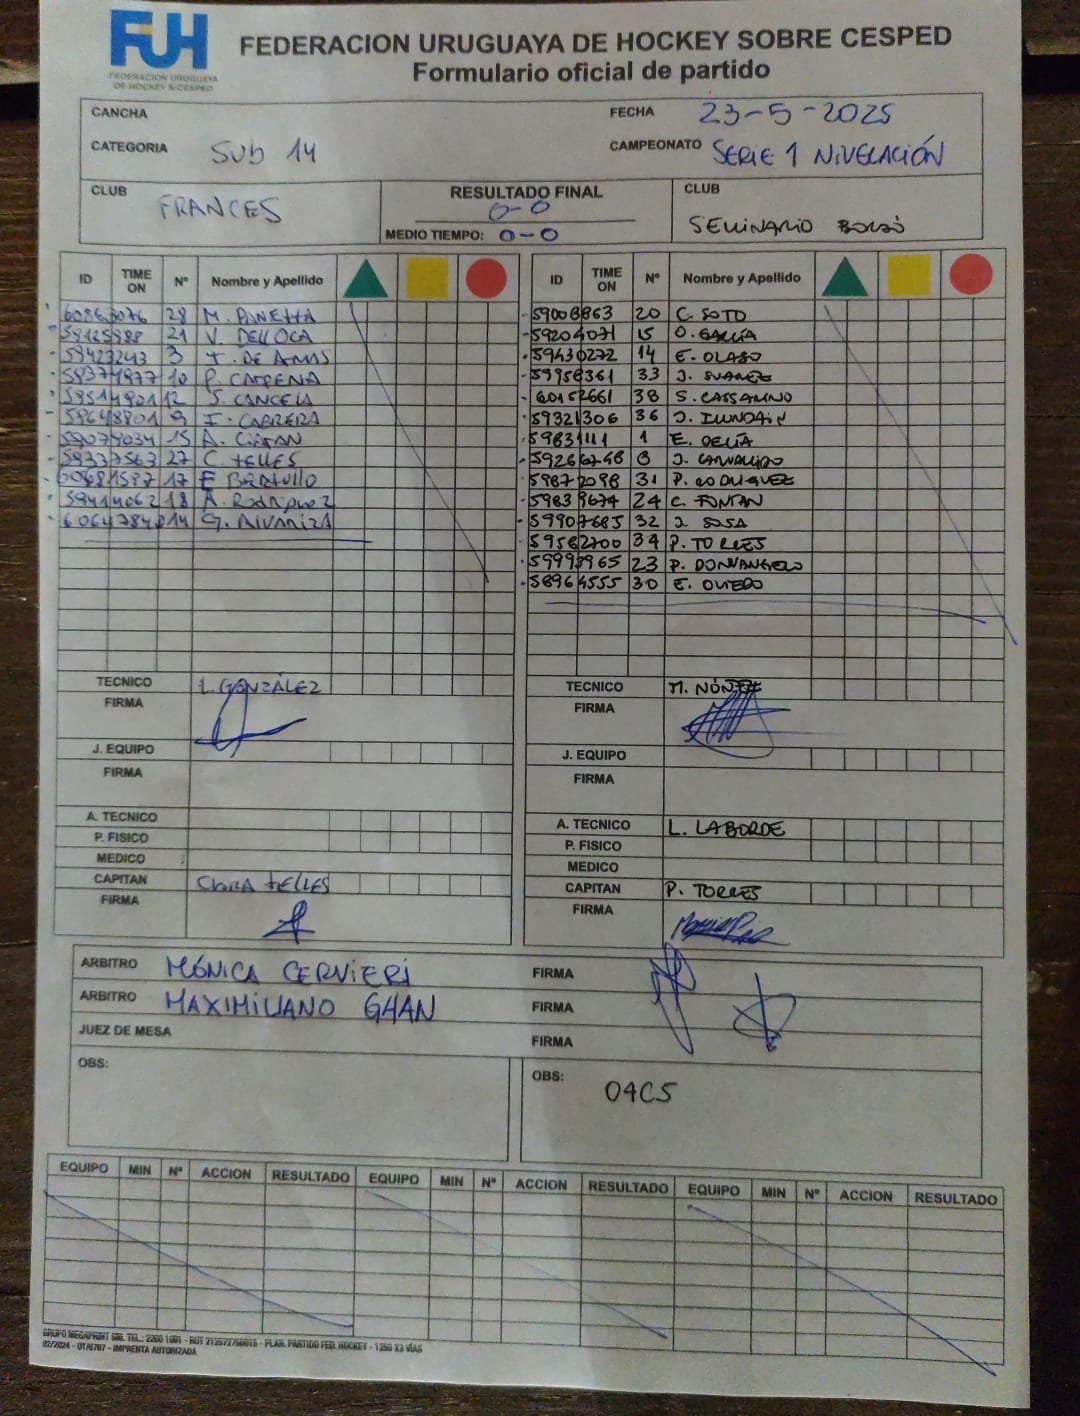 FUH
FEDERACION URUGUAYA
DE HOCKEY S/CESPED
FEDERACION URUGUAYA DE HOCKEY SOBRE CESPED
Formulario oficial de partido
CANCHA
FECHA 23-5-2025
CATEGORIA SUB 14
CAMPEONATO SERIE 1 NIVELACIÓN
CLUB FRANCES
RESULTADO FINAL
0-0
MEDIO TIEMPO: 0-0
CLUB
SEMINARIO
ID TIME ON Nº Nombre y Apellido
28 M. PANETTA
21 V. DELLOCA
3 DE ARMAS
10 CARPENA
12 S. CANCELA
9 I. CABRERA
59074034 15 A.
59337563 27 C. TELLES
17 BARTULLO
18 A. Rodriguez
14 G. Alvariza
TECNICO L. GONZÁLEZ
FIRMA
J. EQUIPO
FIRMA
A. TECNICO
P. FISICO
MEDICO
CAPITAN CLARA TELLES
FIRMA
ID TIME ON Nº Nombre y Apellido
59008863 20 C. SOTO
59204071 15 O. GARCÍA
59430272 14 E. OLASO
59958361 33 J. SUAREZ
60152661 38 S. CASSARINO
59321306 36 J. ILUNDAIN
59831111 1 E. DELÍA
J. CARVALLIDO
59872098 31 P. RODRIGUEZ
59839674 24 C. FONTAN
59907685 32 J. SOSA
59582700 34 P. TORRES
59997965 23 P. DONNANGELO
58964555 30 E. OVIEDO
TECNICO M. NÚÑEZ
FIRMA
J. EQUIPO
FIRMA
A. TECNICO L. LABORDE
P. FISICO
MEDICO
CAPITAN P. TORRES
FIRMA
ARBITRO MÓNICA CERVIERI FIRMA
ARBITRO MAXIMILIANO GHAN FIRMA
JUEZ DE MESA FIRMA
OBS:
OBS: 04C5
EQUIPO MIN Nº ACCION RESULTADO EQUIPO MIN Nº ACCION RESULTADO EQUIPO MIN Nº ACCION RESULTADO
GRUPO MEGAPRINT SRL TEL.: 2200 1091 - RUT 212672760015 - PLAN. PARTIDO FED. HOCKEY - 1250 X3 VÍAS
02/2024 - 01/6767 - IMPRENTA AUTORIZADA